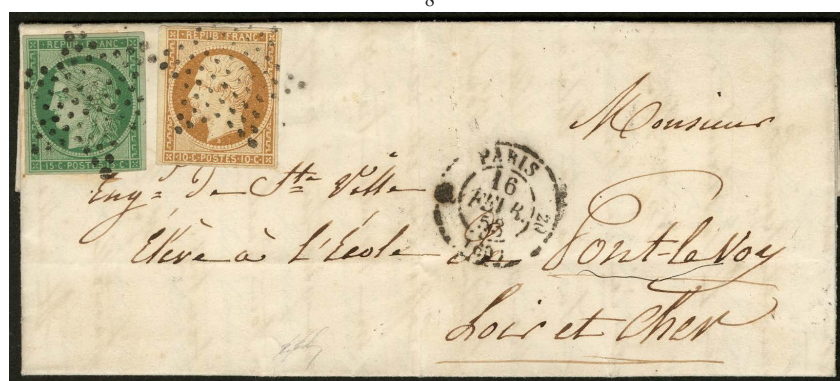 8
REPUB. FRANC.
15 C. POSTES 15 C.
REPUB. FRANC.
10 C. POSTES 10 C.
Monsieur
PARIS
16
FEVR.
53
Eug. De Ste Ville
Elève à l'Ecole de Pont-le Voy
Loir et Cher